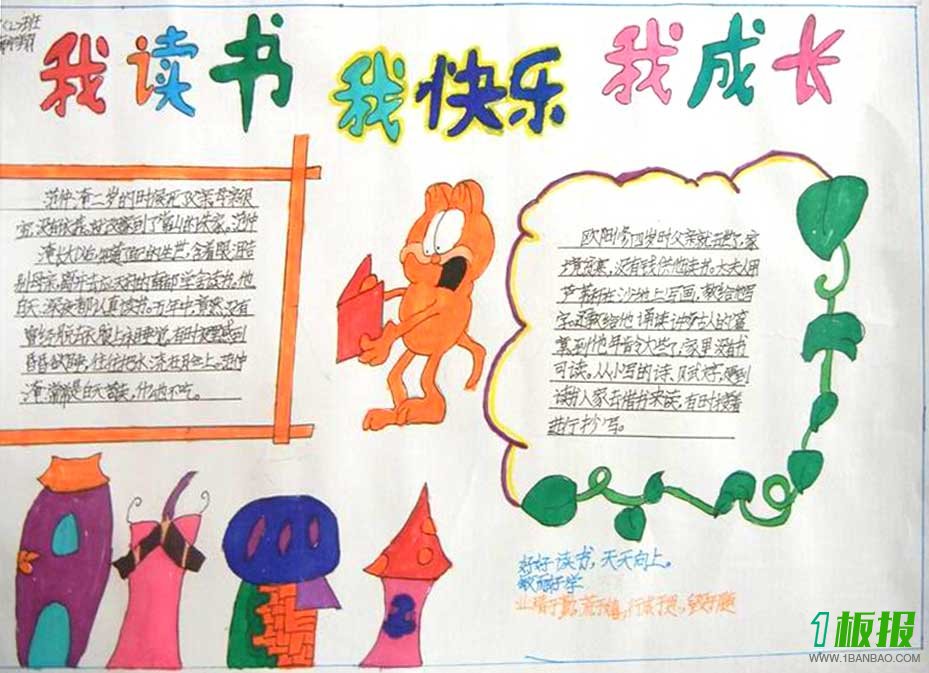 我读书 我快乐 我成长
范仲淹二岁的时候死了父亲母亲很
淹长大后，知道了自己的生世，含着眼泪告
别母亲，离开去应天府的南都学舍读书。他
白天、深夜都认真读书。五年中，竟然没有
曾经脱去衣服上床睡觉，有时夜里感到
昏昏欲睡，往往把水浇在脸上。范仲
淹常常是白天苦读，什么也不吃。
欧阳修四岁时父亲就去世了，家
境贫寒，没有钱供他读书。太夫人用
芦苇秆在沙地上写画，教给他写
字。还教给他诵读许多古人的篇
章。到他年龄大些了，家里没有书
可读。
进行抄写。
好好读书，天天向上。
敏而好学
1板报
WWW.1BANBAO.COM